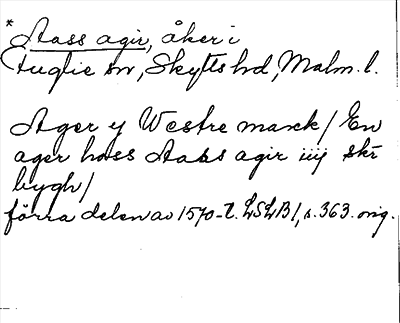 *Aass agir, åker i
Fuglie sn, Skytts hd, Malm. l.
Ager y Westre marck/ En
ager hoss Aass agir iiij skr
bygh/
förra delen av 1570-t. LSLB1, s. 363. orig.